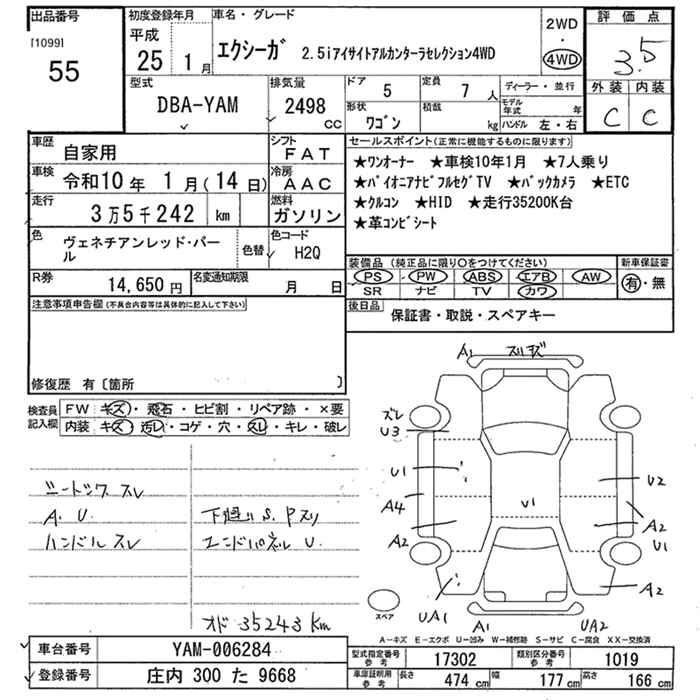 出品番号 初度登録年月 車名・グレード 2WD ・ 4WD 評価点
[1099] 55
平成 25 1月 エクシーガ 2.5iアイサイトアルカンターラセレクション4WD 3.5
外装 内装
C C
型式 DBA-YAM 排気量 2498 cc ドア 5 定員 7人 ディーラー・並行
形状 ワゴン 積載 kg モデル年式 年 ハンドル 左・右
車歴 自家用 シフト FAT セールスポイント(正常に機能するものに限ります)
車検 令和10年 1月(14日) 冷房 AAC
走行 3万5千242 km 燃料 ガソリン
★ワンオーナー ★車検10年1月 ★7人乗り
★パイオニアナビフルセグTV ★バックカメラ ★ETC
★クルコン ★HID ★走行35200K台
★革コンビシート
色 ヴェネチアンレッド・パール 色替 色コード H2Q
装備品(純正品に限り○をつけてください) 新車保証書
PS PW ABS エアB AW 有・無
SR ナビ TV カワ
R券 14,650円 名変通知期限 月 日
後日品 保証書・取説・スペアキー
注意事項申告欄(不具合内容等は具体的に記入して下さい)
修復歴 有〔箇所 〕
検査員記入欄 FW キズ・飛石・ヒビ割・リペア跡・×要
内装 キズ・汚レ・コゲ・穴・スレ・キレ・破レ
シートックス スレ
A. U. 下廻り S. Pスリ
ハンドルスレ エンドパネル U.
オド 35243km
A1 スリキズ
ズレ
U3
U1 U2
A4 U1 A2
A2 U1
A2
UA1 A1 UA2
スペア
A-キズ E-エクボ U-凹み W-補修跡 S-サビ C-腐食 XX-交換済
車台番号 YAM-006284
登録番号 庄内 300 た 9668
型式指定番号 参考 17302 類別区分番号 参考 1019
車庫証明用 参考 長さ 474 cm 幅 177 cm 高さ 166 cm